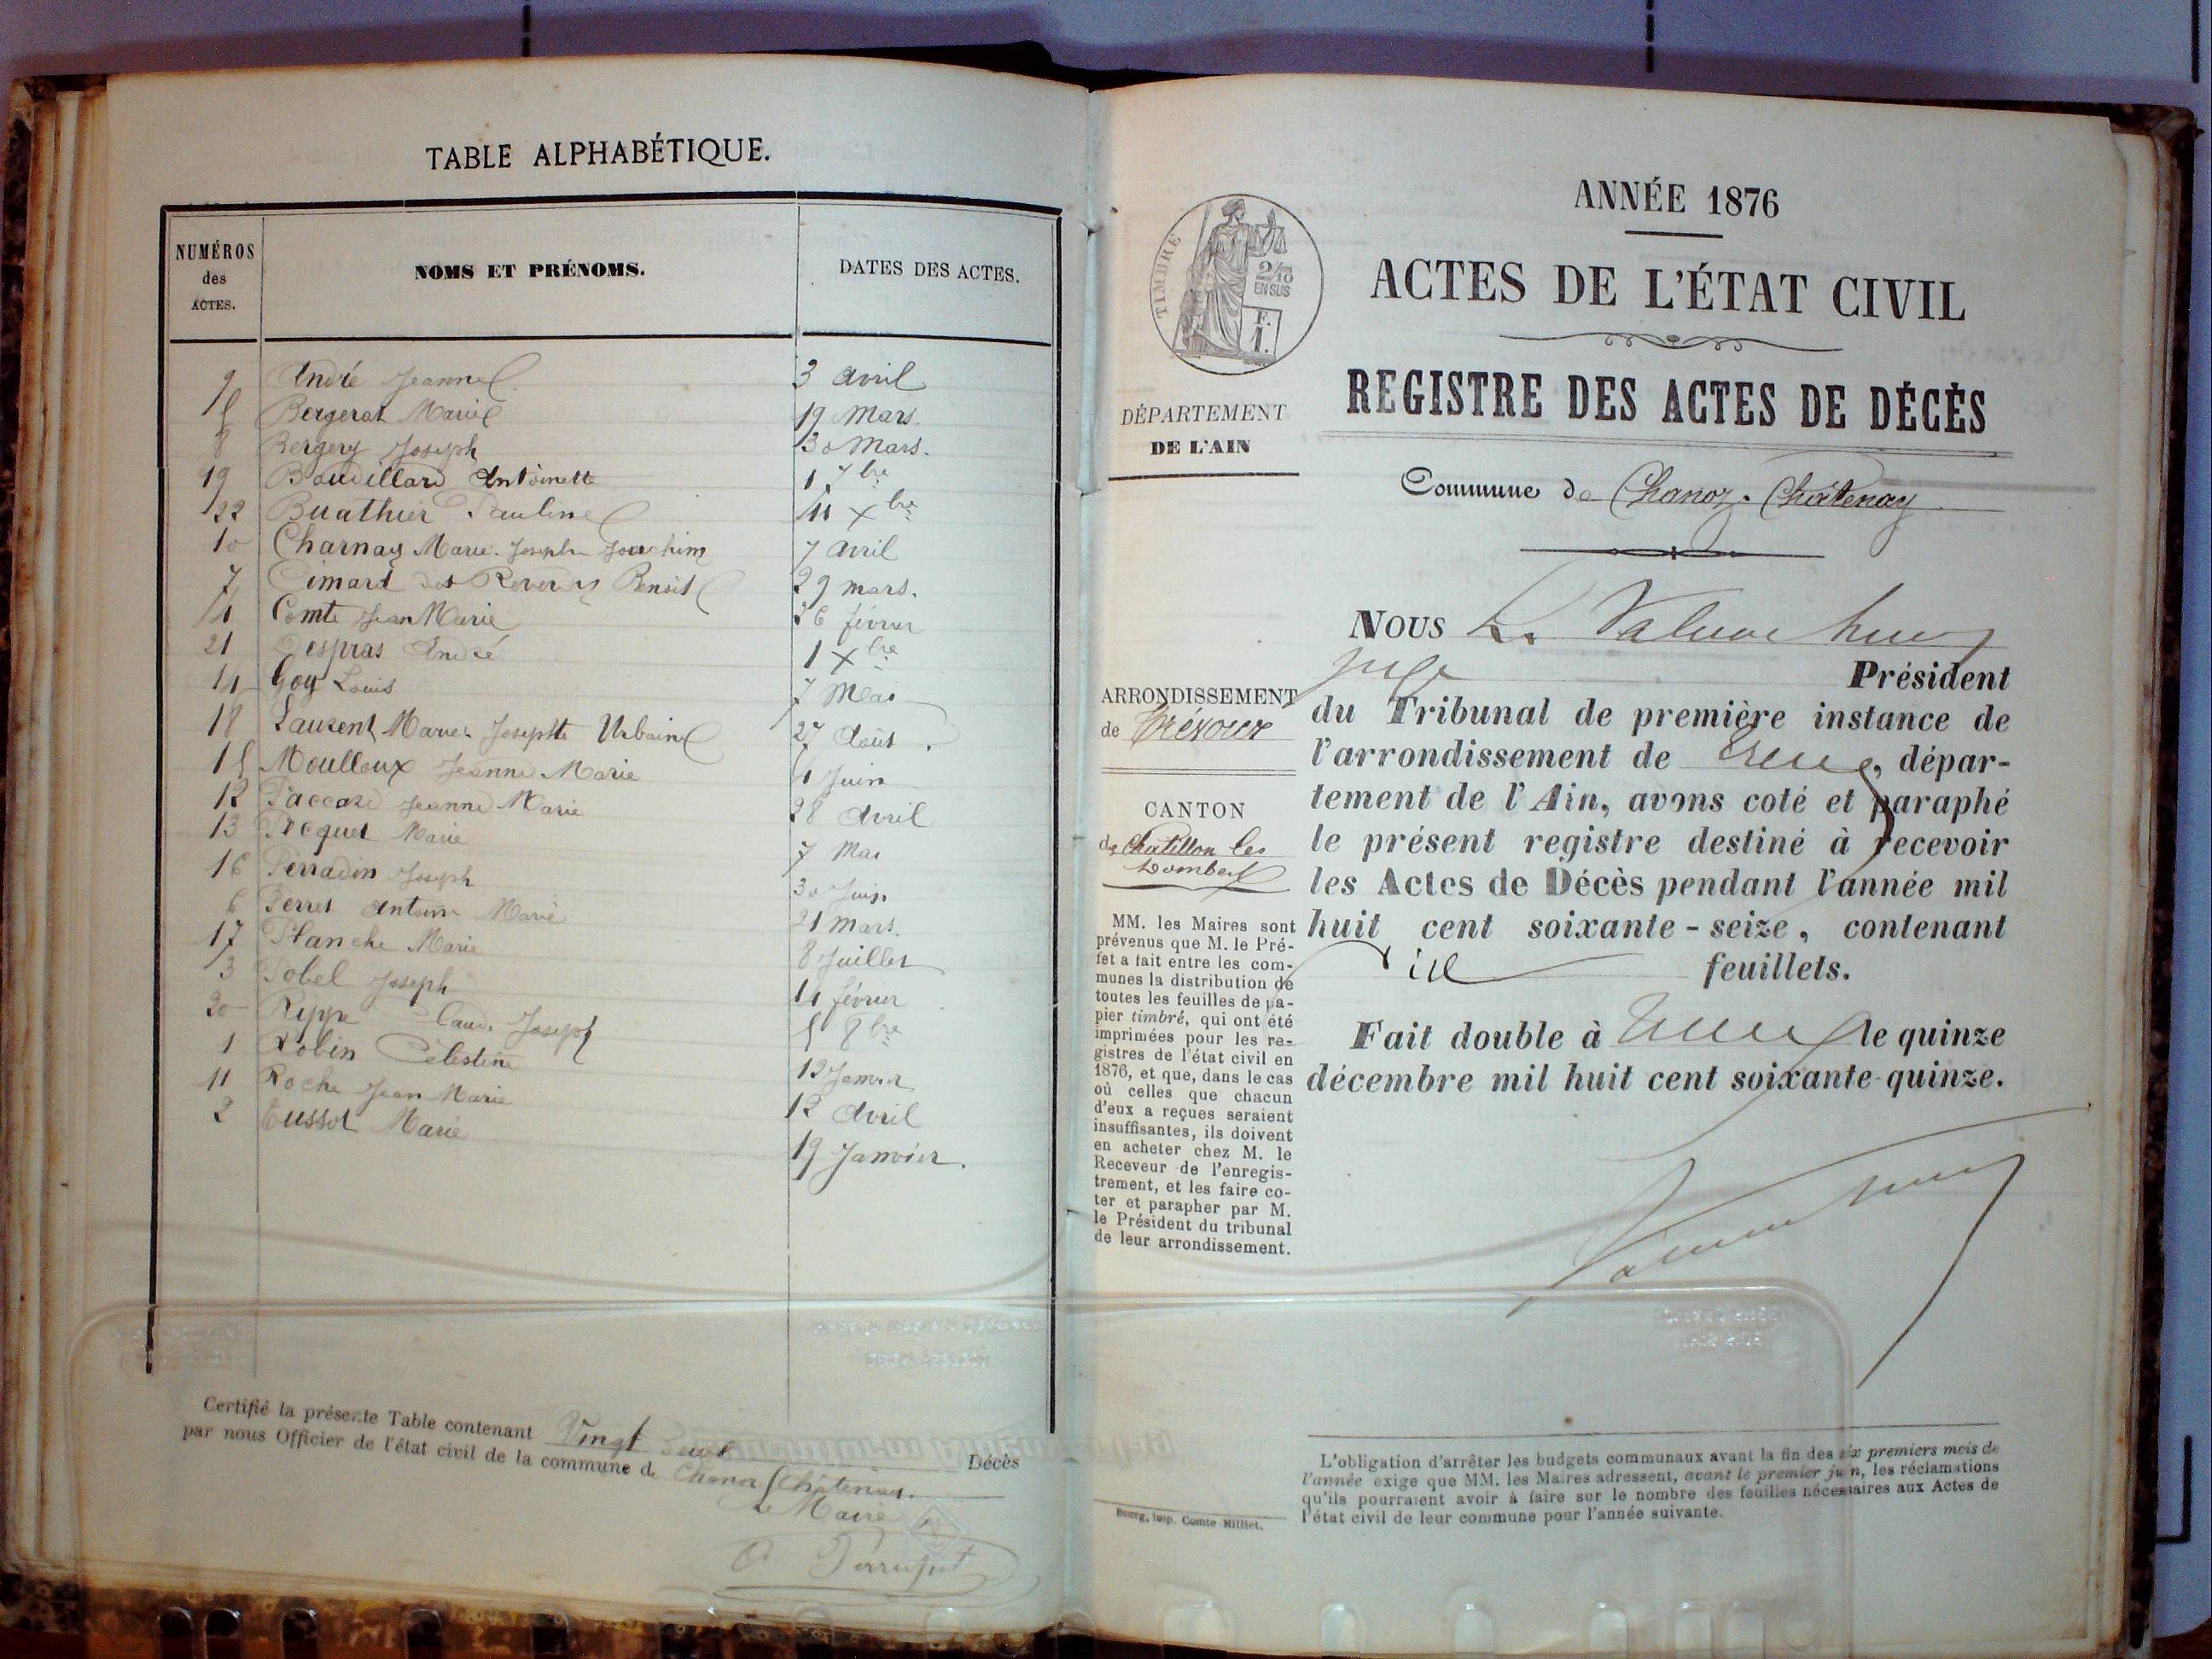 TABLE ALPHABÉTIQUE.
NUMÉROS des ACTES. NOMS ET PRÉNOMS. DATES DES ACTES.
9 André Jeanne 3 avril
5 Bergerat Marie 19 Mars.
8 Bergery Joseph 30 Mars.
19 Baudillard Antoinette 1 7bre
22 Buathier Pauline 11 Xbre
10 Charnay Marie Joseph Joachim 7 avril
7 Cimard Benoit 29 mars.
4 Comte Jean Marie 26 février
21 Despras André 1 Xbre
14 Goy Louis 7 Mai
18 Laurent Marie Josephte Urbaine 27 Août.
15 Moulloux Jeanne Marie 4 Juin
12 Paccard Jeanne Marie 28 avril
13 Marie 7 Mai
16 Perradin Joseph 30 Juin
6 Perret Antoine Marie 21 mars.
17 Planche Marie 8 Juillet
3 Pobel Joseph 14 février
20 Rippe Claude Joseph 5 8bre
1 Robin Célestine 12 Janvier
11 Roche Jean Marie 12 avril
2 Tussot Marie 19 Janvier.
Certifié la présente Table contenant Vingt Deux Décès
par nous Officier de l'état civil de la commune de Chanoz Châtenay.
Le Maire
ANNÉE 1876
ACTES DE L'ÉTAT CIVIL
REGISTRE DES ACTES DE DÉCÈS
Commune de Chanoz-Châtenay
TIMBRE
2/10 EN SUS
F. 1.
DÉPARTEMENT
DE L'AIN
ARRONDISSEMENT
de Trévoux
CANTON
de Chatillon les
Dombes
MM. les Maires sont
prévenus que M. le Pré-
fet a fait entre les com-
munes la distribution de
toutes les feuilles de pa-
pier timbré, qui ont été
imprimées pour les re-
gistres de l'état civil en
1876, et que, dans le cas
où celles que chacun
d'eux a reçues seraient
insuffisantes, ils doivent
en acheter chez M. le
Receveur de l'enregis-
trement, et les faire co-
ter et parapher par M.
le Président du tribunal
de leur arrondissement.
Bourg, imp. Comte Milliet.
NOUS
juge Président
du Tribunal de première instance de
l'arrondissement de , dépar-
tement de l'Ain, avons coté et paraphé
le présent registre destiné à recevoir
les Actes de Décès pendant l'année mil
huit cent soixante-seize, contenant
dix feuillets.
Fait double à le quinze
décembre mil huit cent soixante-quinze.
L'obligation d'arrêter les budgets communaux avant la fin des six premiers mois de
l'année exige que MM. les Maires adressent, avant le premier juin, les réclamations
qu'ils pourraient avoir à faire sur le nombre des feuilles nécessaires aux Actes de
l'état civil de leur commune pour l'année suivante.